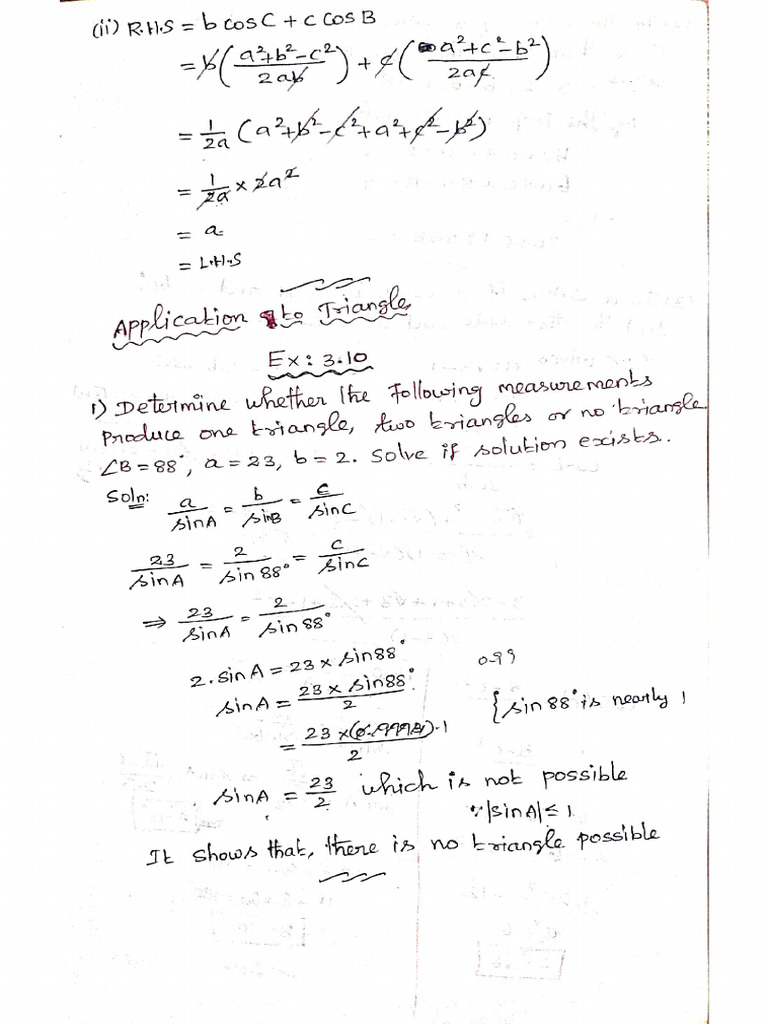 (ii) R.H.S = b cosC + c cosB
= b((a²+b²−c²)/2ab) + c((a²+c²−b²)/2ac)
= 1/2a (a²+b²−c²+a²+c²−b²)
= 1/2a × 2a²
= a
= L.H.S
Application to Triangle
Ex: 3.10
1) Determine whether the following measurements
Produce one triangle, two triangles or no triangle
∠B = 88°, a = 23, b = 2. Solve if solution exists.
Soln: a/sinA = b/sinB = c/sinC
23/sinA = 2/sin88° = c/sinC
⇒ 23/sinA = 2/sin88°
2.sinA = 23 × sin88°
0.99
sinA = (23 × sin88°)/2
{sin 88° is nearly 1
= 23 × 1/2
sinA = 23/2 which is not possible
∵ |sinA| ≤ 1
It shows that, there is no triangle possible